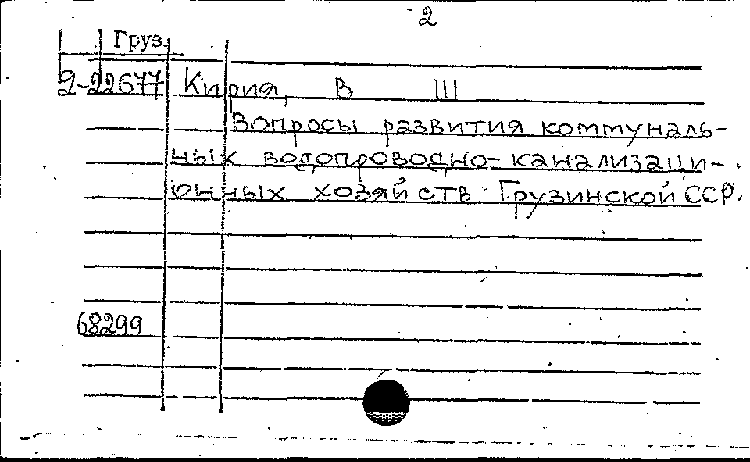 2
Груз.
2-22677 Кирия, В Ш
Вопросы развития коммуналь-
ных водопроводно-канализаци-
онных хозяйств Грузинской ССР.
68299